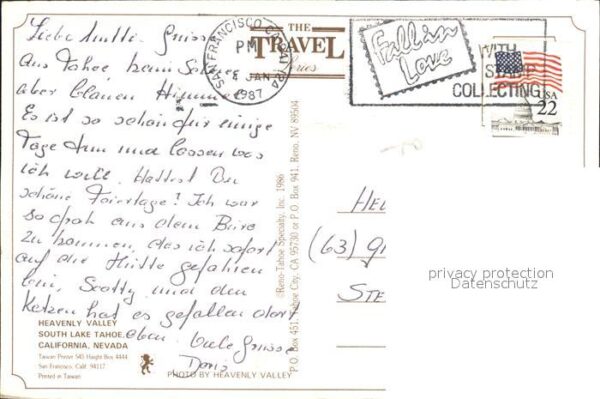 Liebe Mutti. Grüsse
aus Tahoe beim Schnee
aber blauen Himmel
Es ist so schön für einige
Tage tun und lassen was
ich will. Hattest Du
schöne Feiertage? Ich war
so froh aus dem Büro
zu kommen, das ich sofort
auf die Hütte gefahren
bin, Scotty und den
Katzen hat es gefallen dort
oben. Viele Grüsse
Doris
HEAVENLY VALLEY
SOUTH LAKE TAHOE,
CALIFORNIA, NEVADA
Taiwan Printer 545 Haight Box 4444
San Francisco, Calif. 94117
Printed in Taiwan
PHOTO BY HEAVENLY VALLEY
©Reno-Tahoe Specialty, Inc. 1986
P.O. Box 451, Tahoe City, CA 95730 or P.O. Box 941, Reno, NV 89504
THE
TRAVEL
Series
SAN FRANCISCO, CA
PM
JAN
1987
Fall in
Love
WITH
STAMP
COLLECTING
USA
22
HE
(63) G
STE
privacy protection
Datenschutz